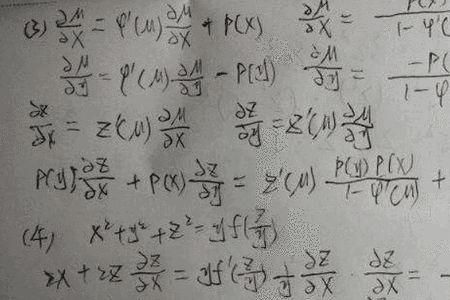 (3) ∂μ/∂x = φ'(μ) ∂μ/∂x + P(x)   ∂μ/∂x = P(x)/(1-φ'(
∂μ/∂y = φ'(μ) ∂μ/∂y - P(y)   ∂μ/∂y = -P(/(1-φ
∂z/∂x = z'(μ) ∂μ/∂x   ∂z/∂y = z'(μ) ∂μ/∂y
P(y) ∂z/∂x + P(x) ∂z/∂y = z'(μ) P(y)P(x)/(1-φ'(μ)) +
(4) x²+y²+z² = yf(z/y)
2x + 2z ∂z/∂x = yf'(z/y) 1/y ∂z/∂x · ∂z/∂x =